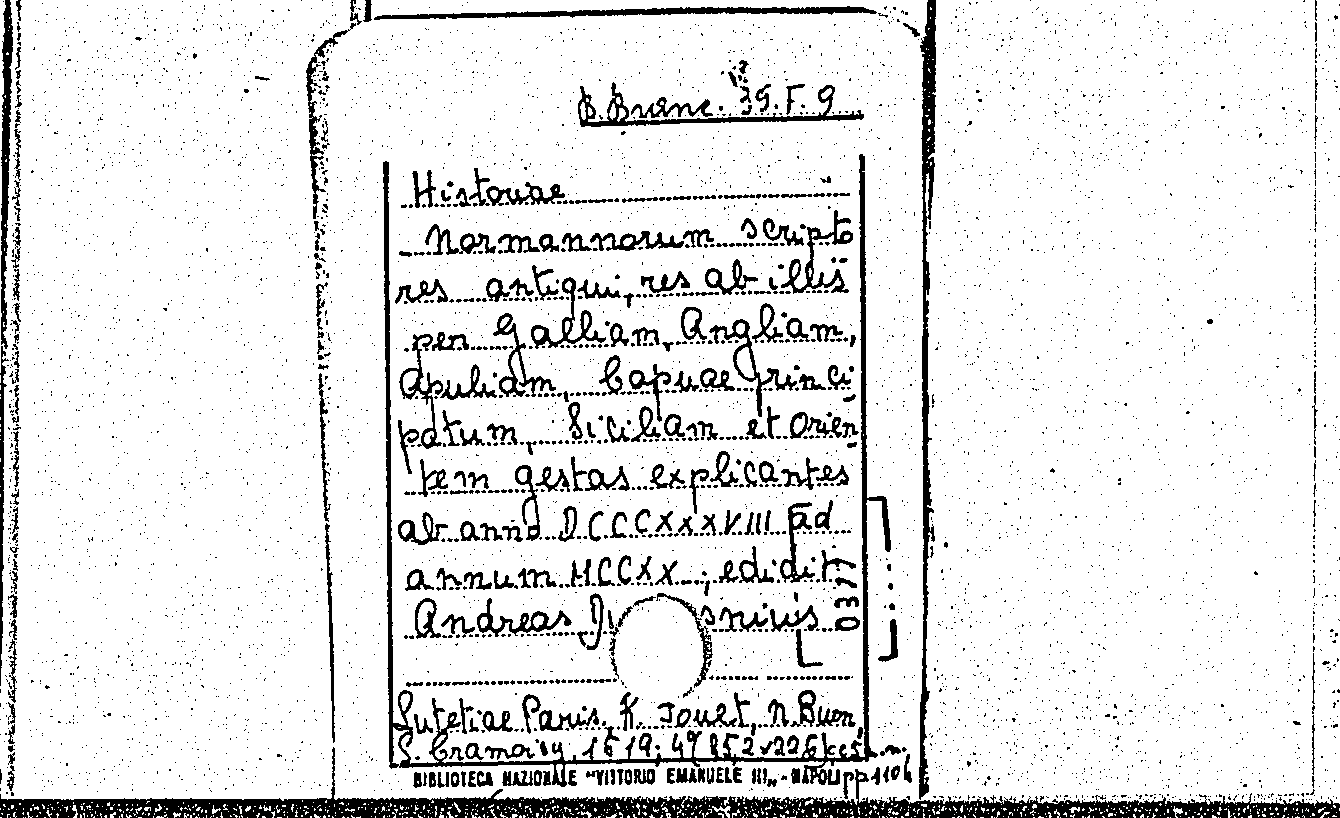 B. Branc. 39. F. 9
Historiae
Normannorum scripto
res antiqui, res ab illis
per Galliam, Angliam,
Apuliam, Capuae princi
patum, Siciliam et Orien
tem gestas explicantes
ab anno DCCCXXXVIII ad
annum MCCXX ; edidit
Andreas Du snius
0377
Lutetiae Paris. R. Fouet, N. Buon,
S. Cramoisy, 1619;
BIBLIOTECA NAZIONALE "VITTORIO EMANUELE III" - NAPOLI pp 1104